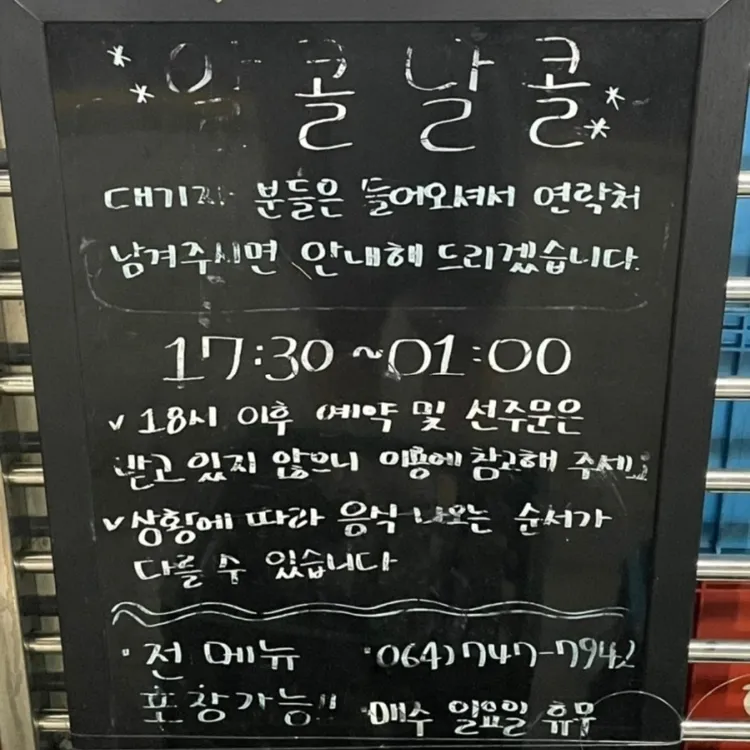 * * 알콜날콜 * *
대기자 분들은 들어오셔서 연락처
남겨주시면 안내해 드리겠습니다.
17:30 ~ 01:00
v 18시 이후 예약 및 선주문은
받고 있지 않으니 이용에 참고해 주세요
v 상황에 따라 음식 나오는 순서가
다를 수 있습니다
· 전 메뉴 · 064) 747-7942
포장가능!! · 매수 일요일 휴무